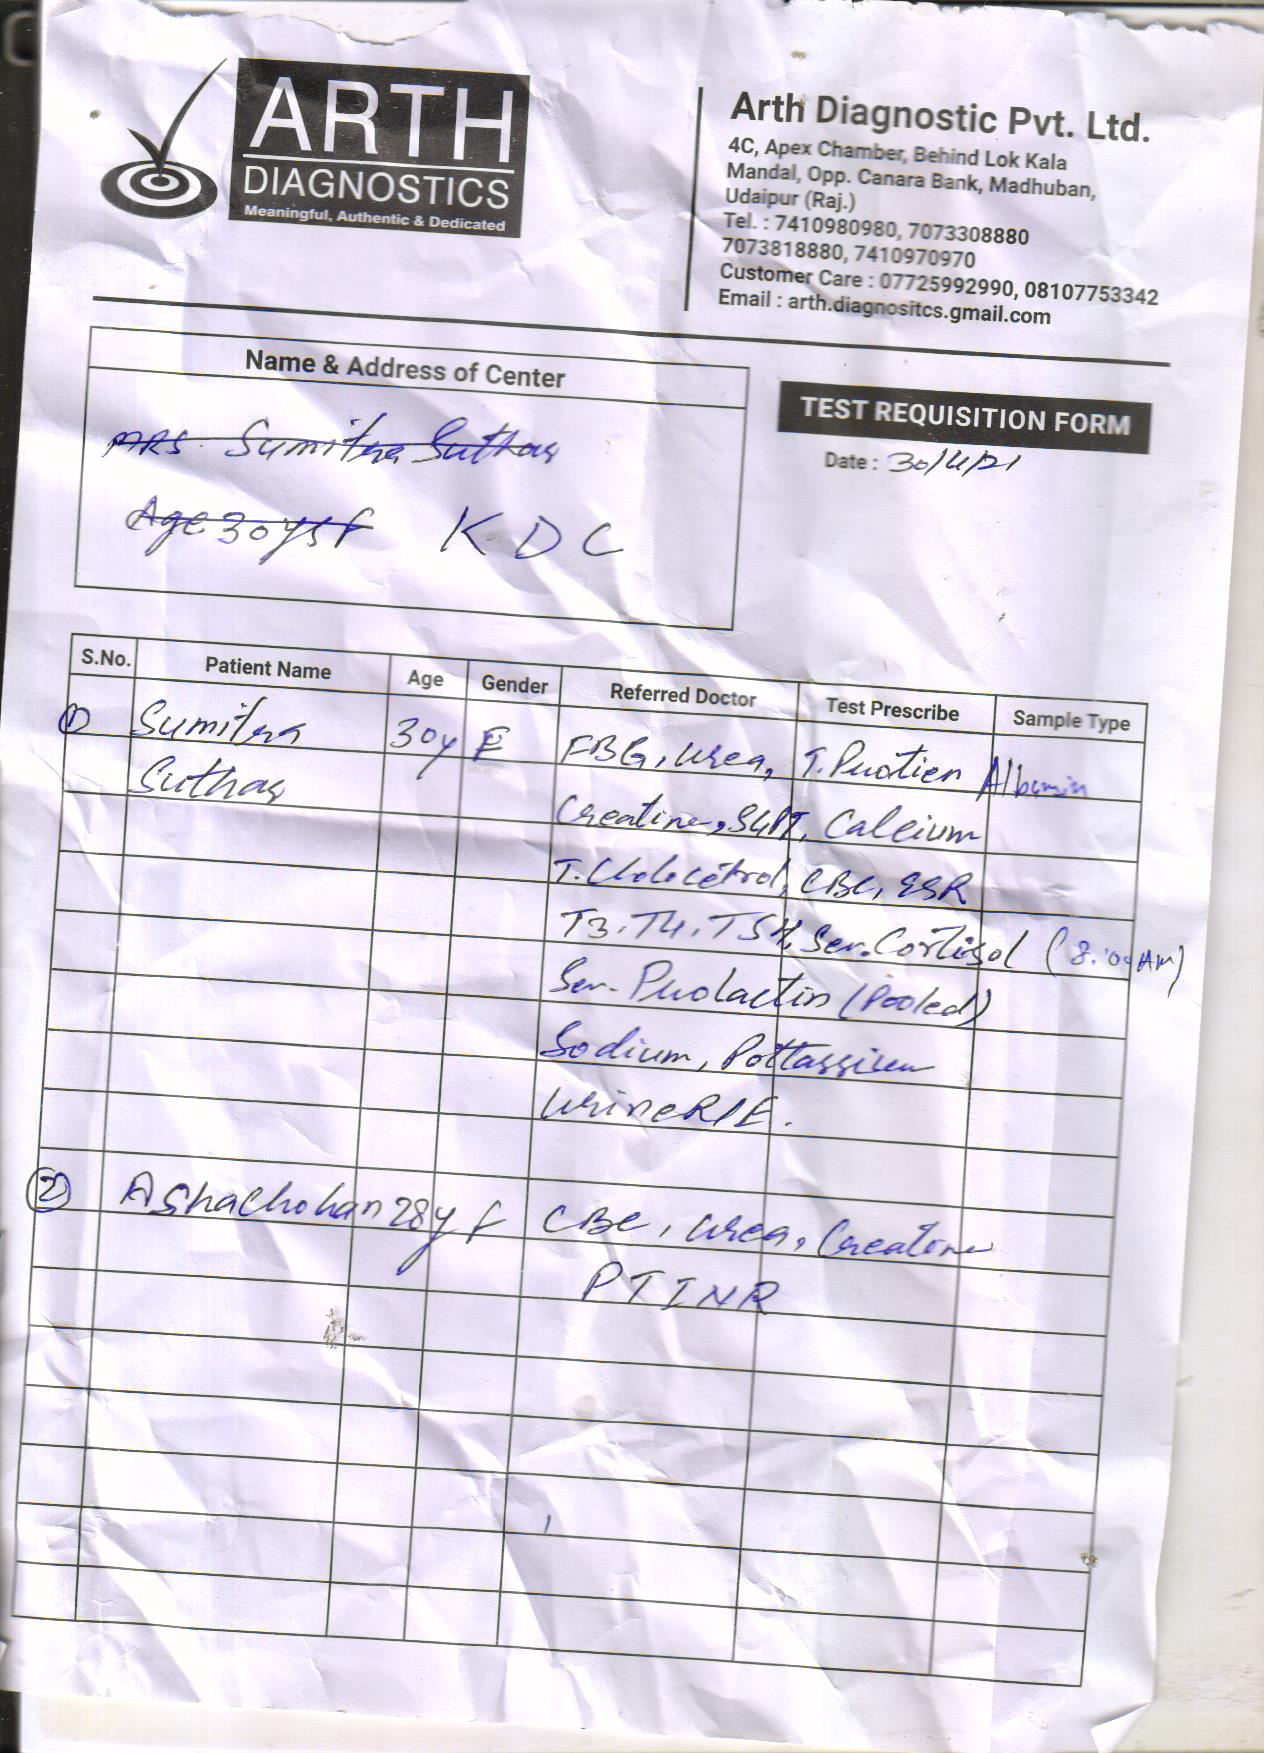 ARTH
DIAGNOSTICS
Meaningful, Authentic & Dedicated
Arth Diagnostic Pvt. Ltd.
4C, Apex Chamber, Behind Lok Kala
Mandal, Opp. Canara Bank, Madhuban,
Udaipur (Raj.)
Tel. : 7410980980, 7073308880
7073818880, 7410970970
Customer Care : 07725992990, 08107753342
Email : arth.diagnositcs.gmail.com
Name & Address of Center
MRS. Sumitra Suthar
Age 30 ys f KDC
TEST REQUISITION FORM
Date : 30/4/21
S.No. Patient Name Age Gender Referred Doctor Test Prescribe Sample Type
1 Sumitra 30y F FBG, Urea, T. Protien Albumin
Suthar Creatine, SGPT, Calcium
T. Cholocetrol, CBC, ESR
T3. T4. TSH, Ser. Cortisol (8:00 AM)
Ser. Prolactin (Pooled)
Sodium, Pottassium
Urine R/E.
2 Asha Chohan 28y f CBC, Urea, Creatine
PTINR